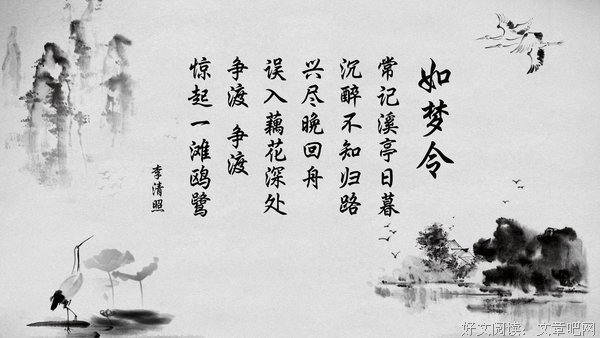 如梦令
常记溪亭日暮
沉醉不知归路
兴尽晚回舟
误入藕花深处
争渡 争渡
惊起一滩鸥鹭
李清照
好文阅读：文章吧网